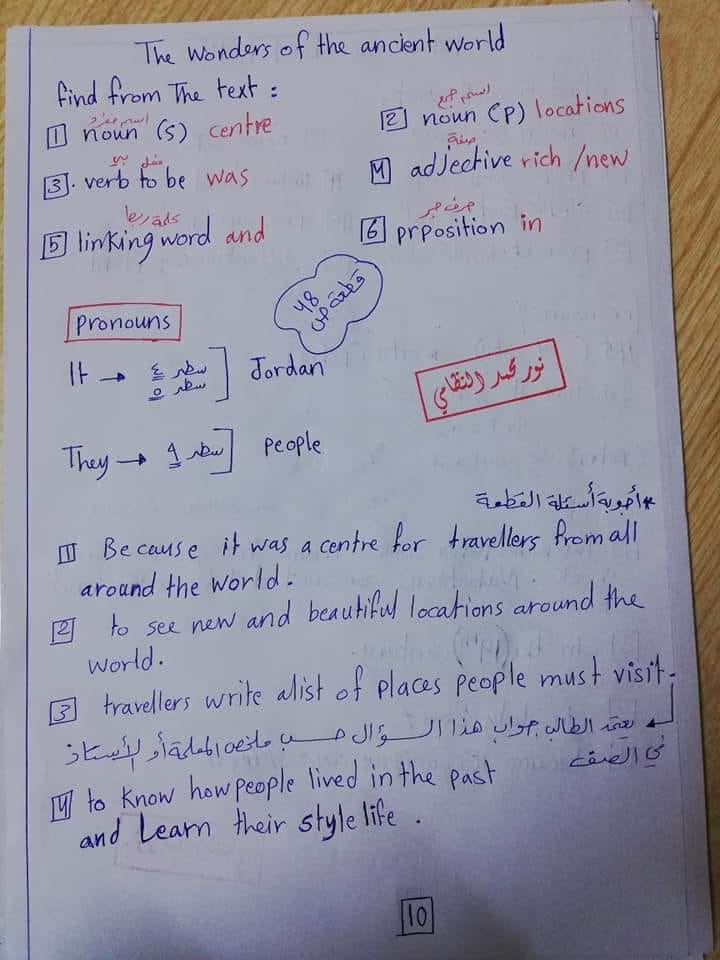 The wonders of the ancient world
find from The text :
اسم مفرد
اسم جمع
1 noun (s) centre
2 noun (p) locations
صفة
3. verb to be was
4 adjective rich /new
كلمة ربط
حرف جر
5 linking word and
6 prposition in
قطعة ص
48
Pronouns
It → سطر ٤
سطر ٥
Jordan
نور محمد النقامي
They → سطر ٩ people
*أجوبة أسئلة القطعة
1 Because it was a centre for travellers from all
around the world.
2 to see new and beautiful locations around the
world.
3 travellers write alist of places people must visit.
يعتمد الطالب جواب هذا السؤال حسب ملخص المعلمة أو الأستاذ
في الصف
4 to know how people lived in the past
and Learn their style life .
10